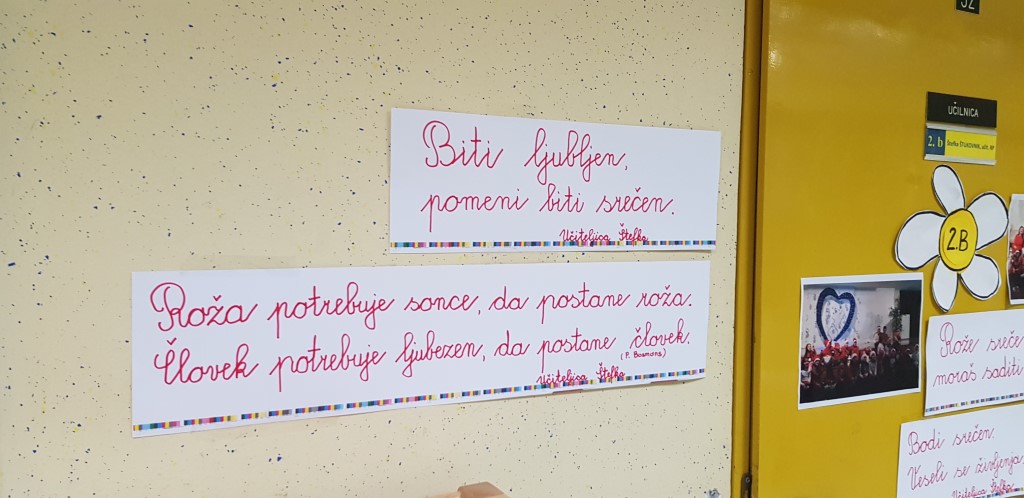 Biti ljubljen,
pomeni biti srečen.
Učiteljica Štefka
Roža potrebuje sonce, da postane roža.
Človek potrebuje ljubezen, da postane človek.
(P. Bosmans)
Učiteljica Štefka
32
UČILNICA
2. b
Štefka ŠTUKOVNIK, učit. RP
2.B
Rože sreče
moraš saditi
Bodi srečen.
Veseli se življenja
Učiteljica Štefka